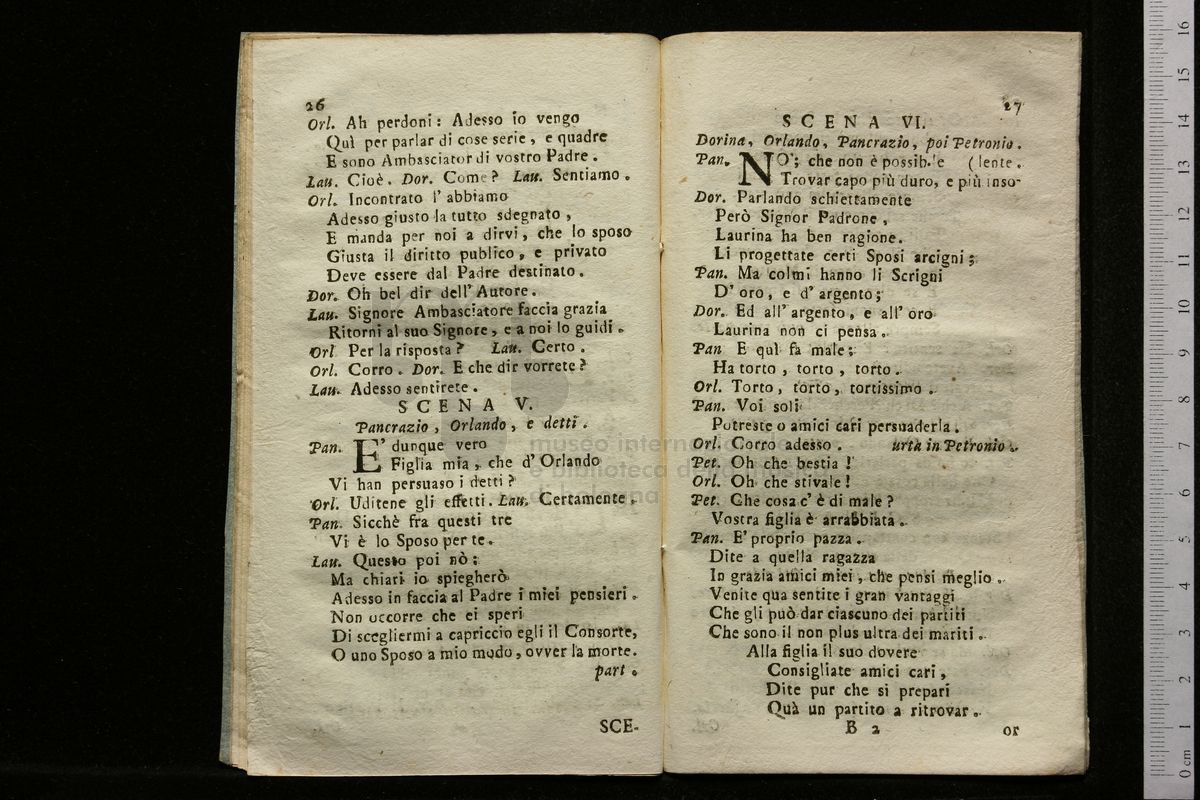 26
Orl. Ah perdoni: Adesso io vengo
Quì per parlar di cose serie, e quadre
E sono Ambasciator di vostro Padre.
Lau. Cioè. Dor. Come? Lau. Sentiamo.
Orl. Incontrato l' abbiamo
Adesso giusto la tutto sdegnato,
E manda per noi a dirvi, che lo sposo
Giusta il diritto publico, e privato
Deve essere dal Padre destinato.
Dor. Oh bel dir dell' Autore.
Lau. Signore Ambasciatore faccia grazia
Ritorni al suo Signore, e a noi lo guidi.
Orl. Per la risposta? Lau. Certo.
Orl. Corro. Dor. E che dir vorrete?
Lau. Adesso sentirete.
SCENA V.
Pancrazio, Orlando, e detti.
Pan. E' dunque vero
Figlia mia, che d' Orlando
Vi han persuaso i detti?
Orl. Uditene gli effetti. Lau. Certamente.
Pan. Sicchè fra questi tre
Vi è lo Sposo per te.
Lau. Questo poi nò:
Ma chiari io spiegherò
Adesso in faccia al Padre i miei pensieri.
Non occorre che ei speri
Di scegliermi a capriccio egli il Consorte,
O uno Sposo a mio modo, ovver la morte.
part.
SCE-
27
SCENA VI.
Dorina, Orlando, Pancrazio, poi Petronio.
Pan. NO'; che non è possibile (lente.
Trovar capo più duro, e più inso-
Dor. Parlando schiettamente
Però Signor Padrone,
Laurina ha ben ragione.
Li progettate certi Sposi arcigni;
Pan. Ma colmi hanno li Scrigni
D' oro, e d' argento;
Dor. Ed all' argento, e all' oro
Laurina non ci pensa.
Pan E quì fa male;
Ha torto, torto, torto.
Orl. Torto, torto, tortissimo.
Pan. Voi soli
Potreste o amici cari persuaderla.
Orl. Corro adesso. urta in Petronio.
Pet. Oh che bestia!
Orl. Oh che stivale!
Pet. Che cosa c' è di male?
Vostra figlia è arrabbiata.
Pan. E' proprio pazza.
Dite a quella ragazza
In grazia amici miei, che pensi meglio.
Venite qua sentite i gran vantaggi
Che gli può dar ciascuno dei partiti
Che sono il non plus ultra dei mariti.
Alla figlia il suo dovere
Consigliate amici cari,
Dite pur che si prepari
Quà un partito a ritrovar.
B 2
or